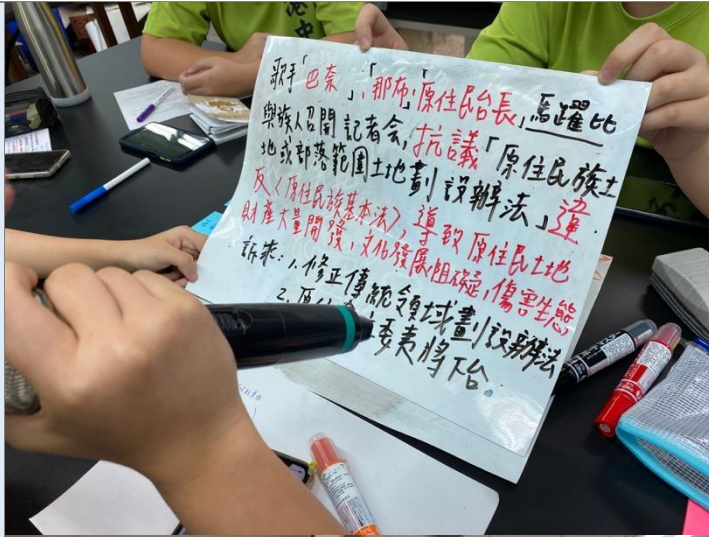 歌手「巴奈」、「那布」,「原住民台長」馬躍比
與族人召開記者會,抗議「原住民族土
地或部落範圍土地劃設辦法」違
反<原住民族基本法>,導致原住民土地
財產大量開發,文化發展阻礙,傷害生態
訴求:1.修正傳統領域劃設辦法
2.原 委夷將下台。